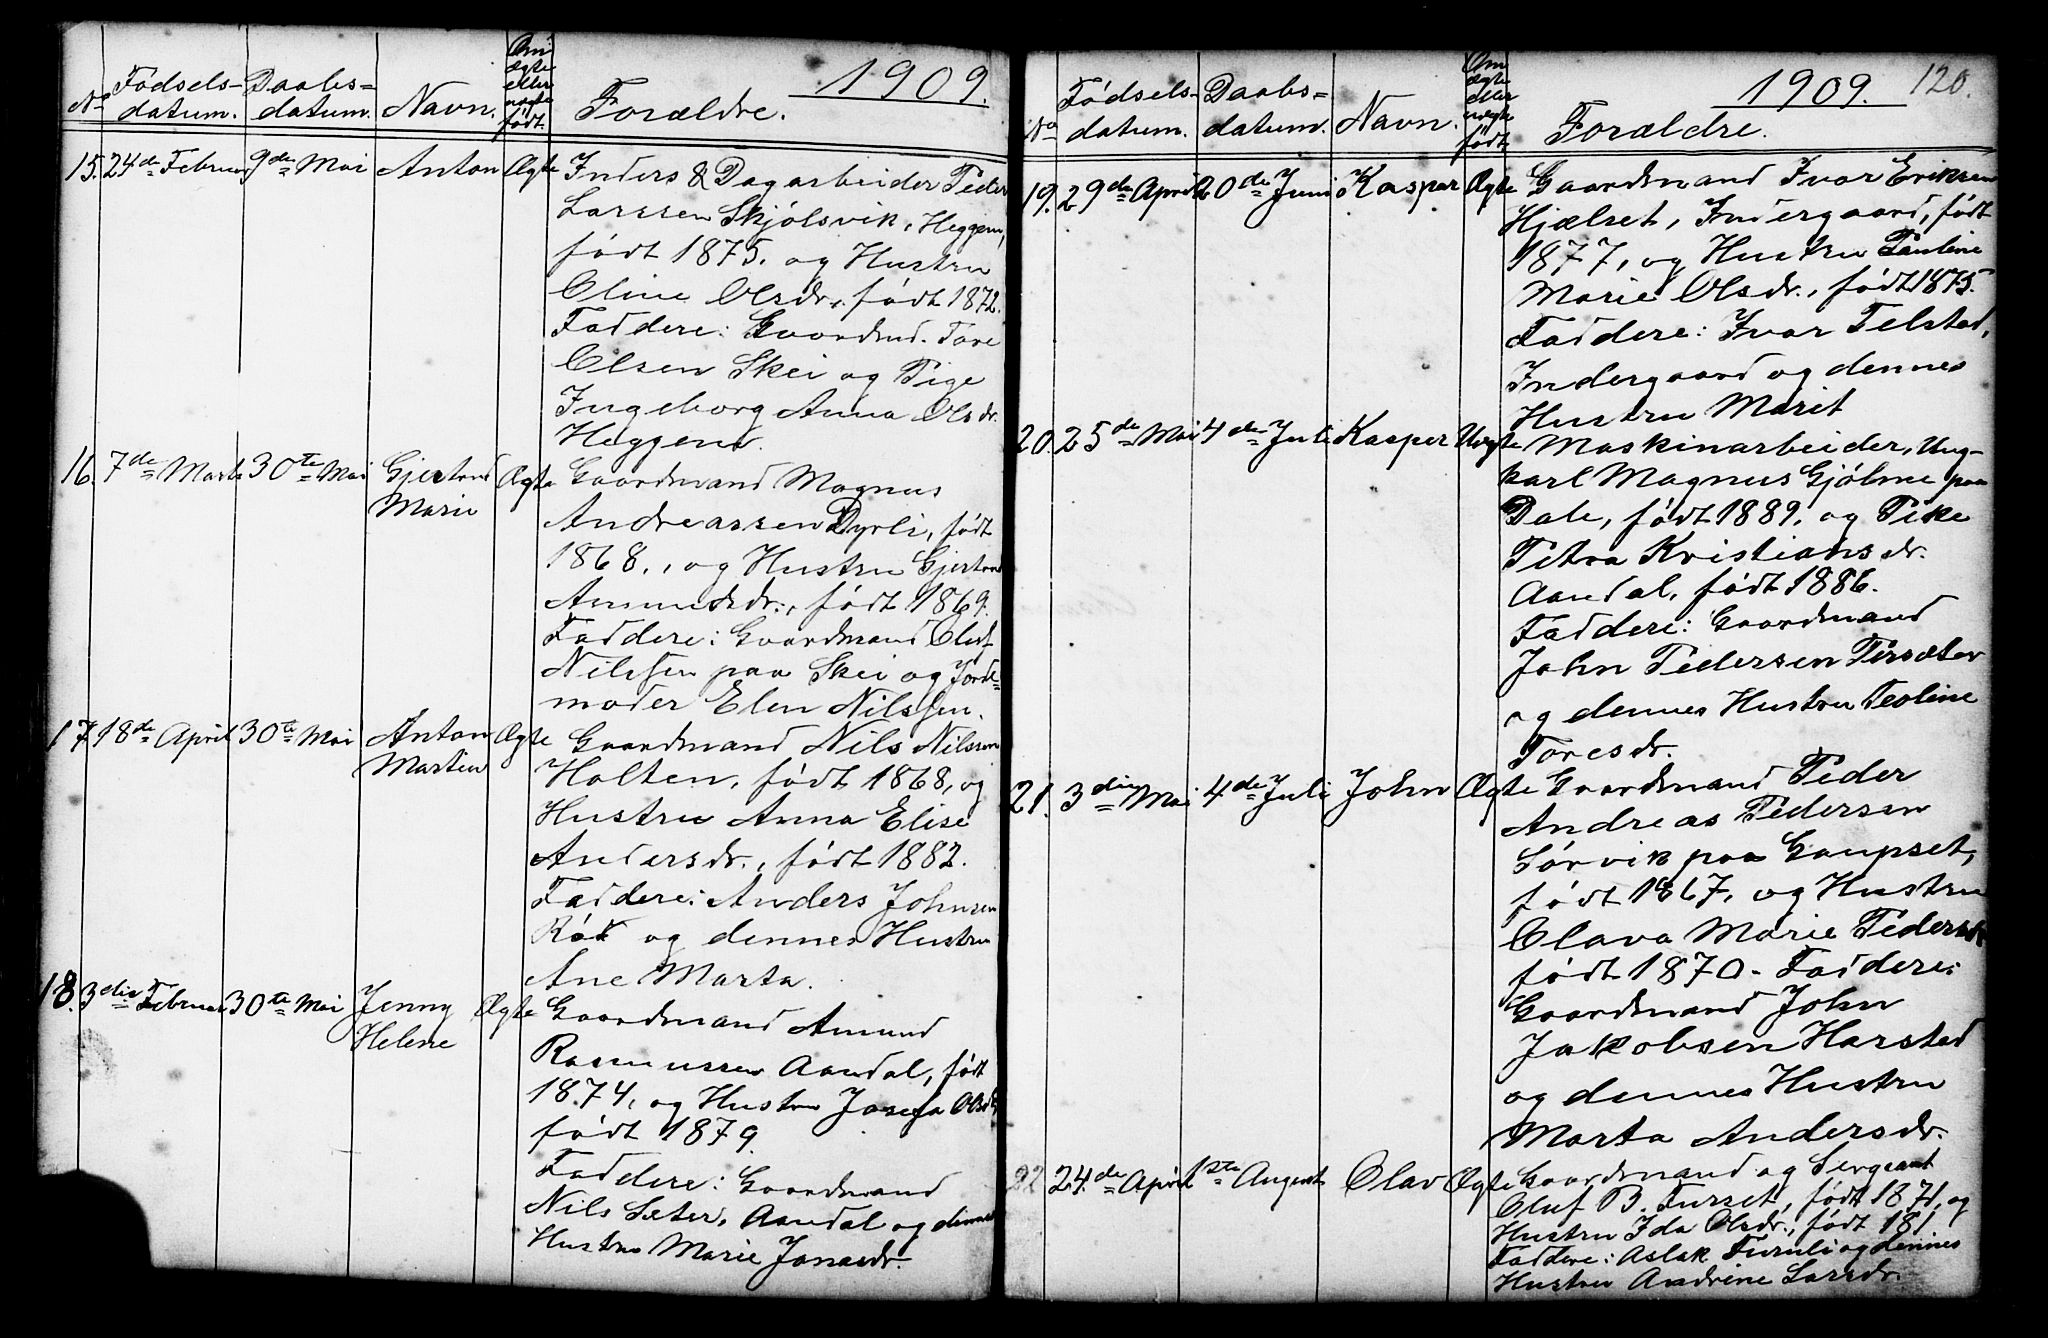 1909.
No Fødsels- datum. Daabs= datum. Navn. Om ægte eller uægte født. Forældre.
15. 24de Februar 9de Mai Anton Ægte Inders & Dagarbeider Peder
Larssen Skjølsvik, Heggem,
født 1875. og Hustru
Oline Olsdr., født 1872.
Faddere: Gaardmd. Tore
Olsen Skei og Pige
Ingeborg Anna Olsdr.
Heggem.
16. 7de Marts 30te Mai Gjertrud Marie Ægte Gaardmand Magnus
Andreassen Dyrli, født
1868., og Hustru Gjertrud
Amundsdr., født 1869.
Faddere: Gaardmand Oluf
Nilssen paa Skei og Jorde=
moder Elen Nilssen.
17. 18de April 30te Mai Anton Martin Ægte Gaardmand Nils Nilssen
Holten, født 1868, og
Hustru Anna Elise
Andersdr., født 1882.
Faddere: Anders Johnsen
Røt og dennes Hustru
Ane Marta.
18. 3die Februar 30te Mai Jenny Helene Ægte Gaardmand Amund
Rasmussen Aandal, født
1874, og Hustru Josefa Olsdr
født 1879.
Faddere: Gaardmand
Nils Sæter, Aandal og dennes
Hustru Marie Jonasdr.
1909. 120.
No Fødsels- datum. Daabs= datum. Navn. Om ægte eller uægte født Forældre.
19. 29de April 20de Juni Kaspar Ægte Gaardmand Ivar Eriksen
Hjælset, Indergaard, født
1877, og Hustru Pauline
Marie Olsdr., født 1875.
Faddere: Ivar Telstad,
Indergaard og dennes
Hustru Marit
20. 25de Mai 4de Juli Kasper Uægte Maskinarbeider, Ung-
karl Magnus Gjølme paa
Dale, født 1889. og Pike
Petra Kristiansdr.
Aandal, født 1886.
Faddere: Gaardmand
John Pedersen Persæter
og dennes Hustru Teoline
Toresdr.
21. 3die Mai 4de Juli John Ægte Gaardmand Peder
Andreas Pedersen
Sørvik paa Gaupset,
født 1867, og Hustru
Olava Marie Pedersdr
født 1870. Faddere:
Gaardmand John
Jakobsen Harstad
og dennes Hustru
Marta Andersdr.
22 24.de April 1ste August Olav Ægte Gaardmand og Sergeant
Oluf B. Furset, født 1871, og
Hustru Ida Olsdr., født 181
Faddere: Aslak Furuli og dennes
Hustru Andrine Larsdr.